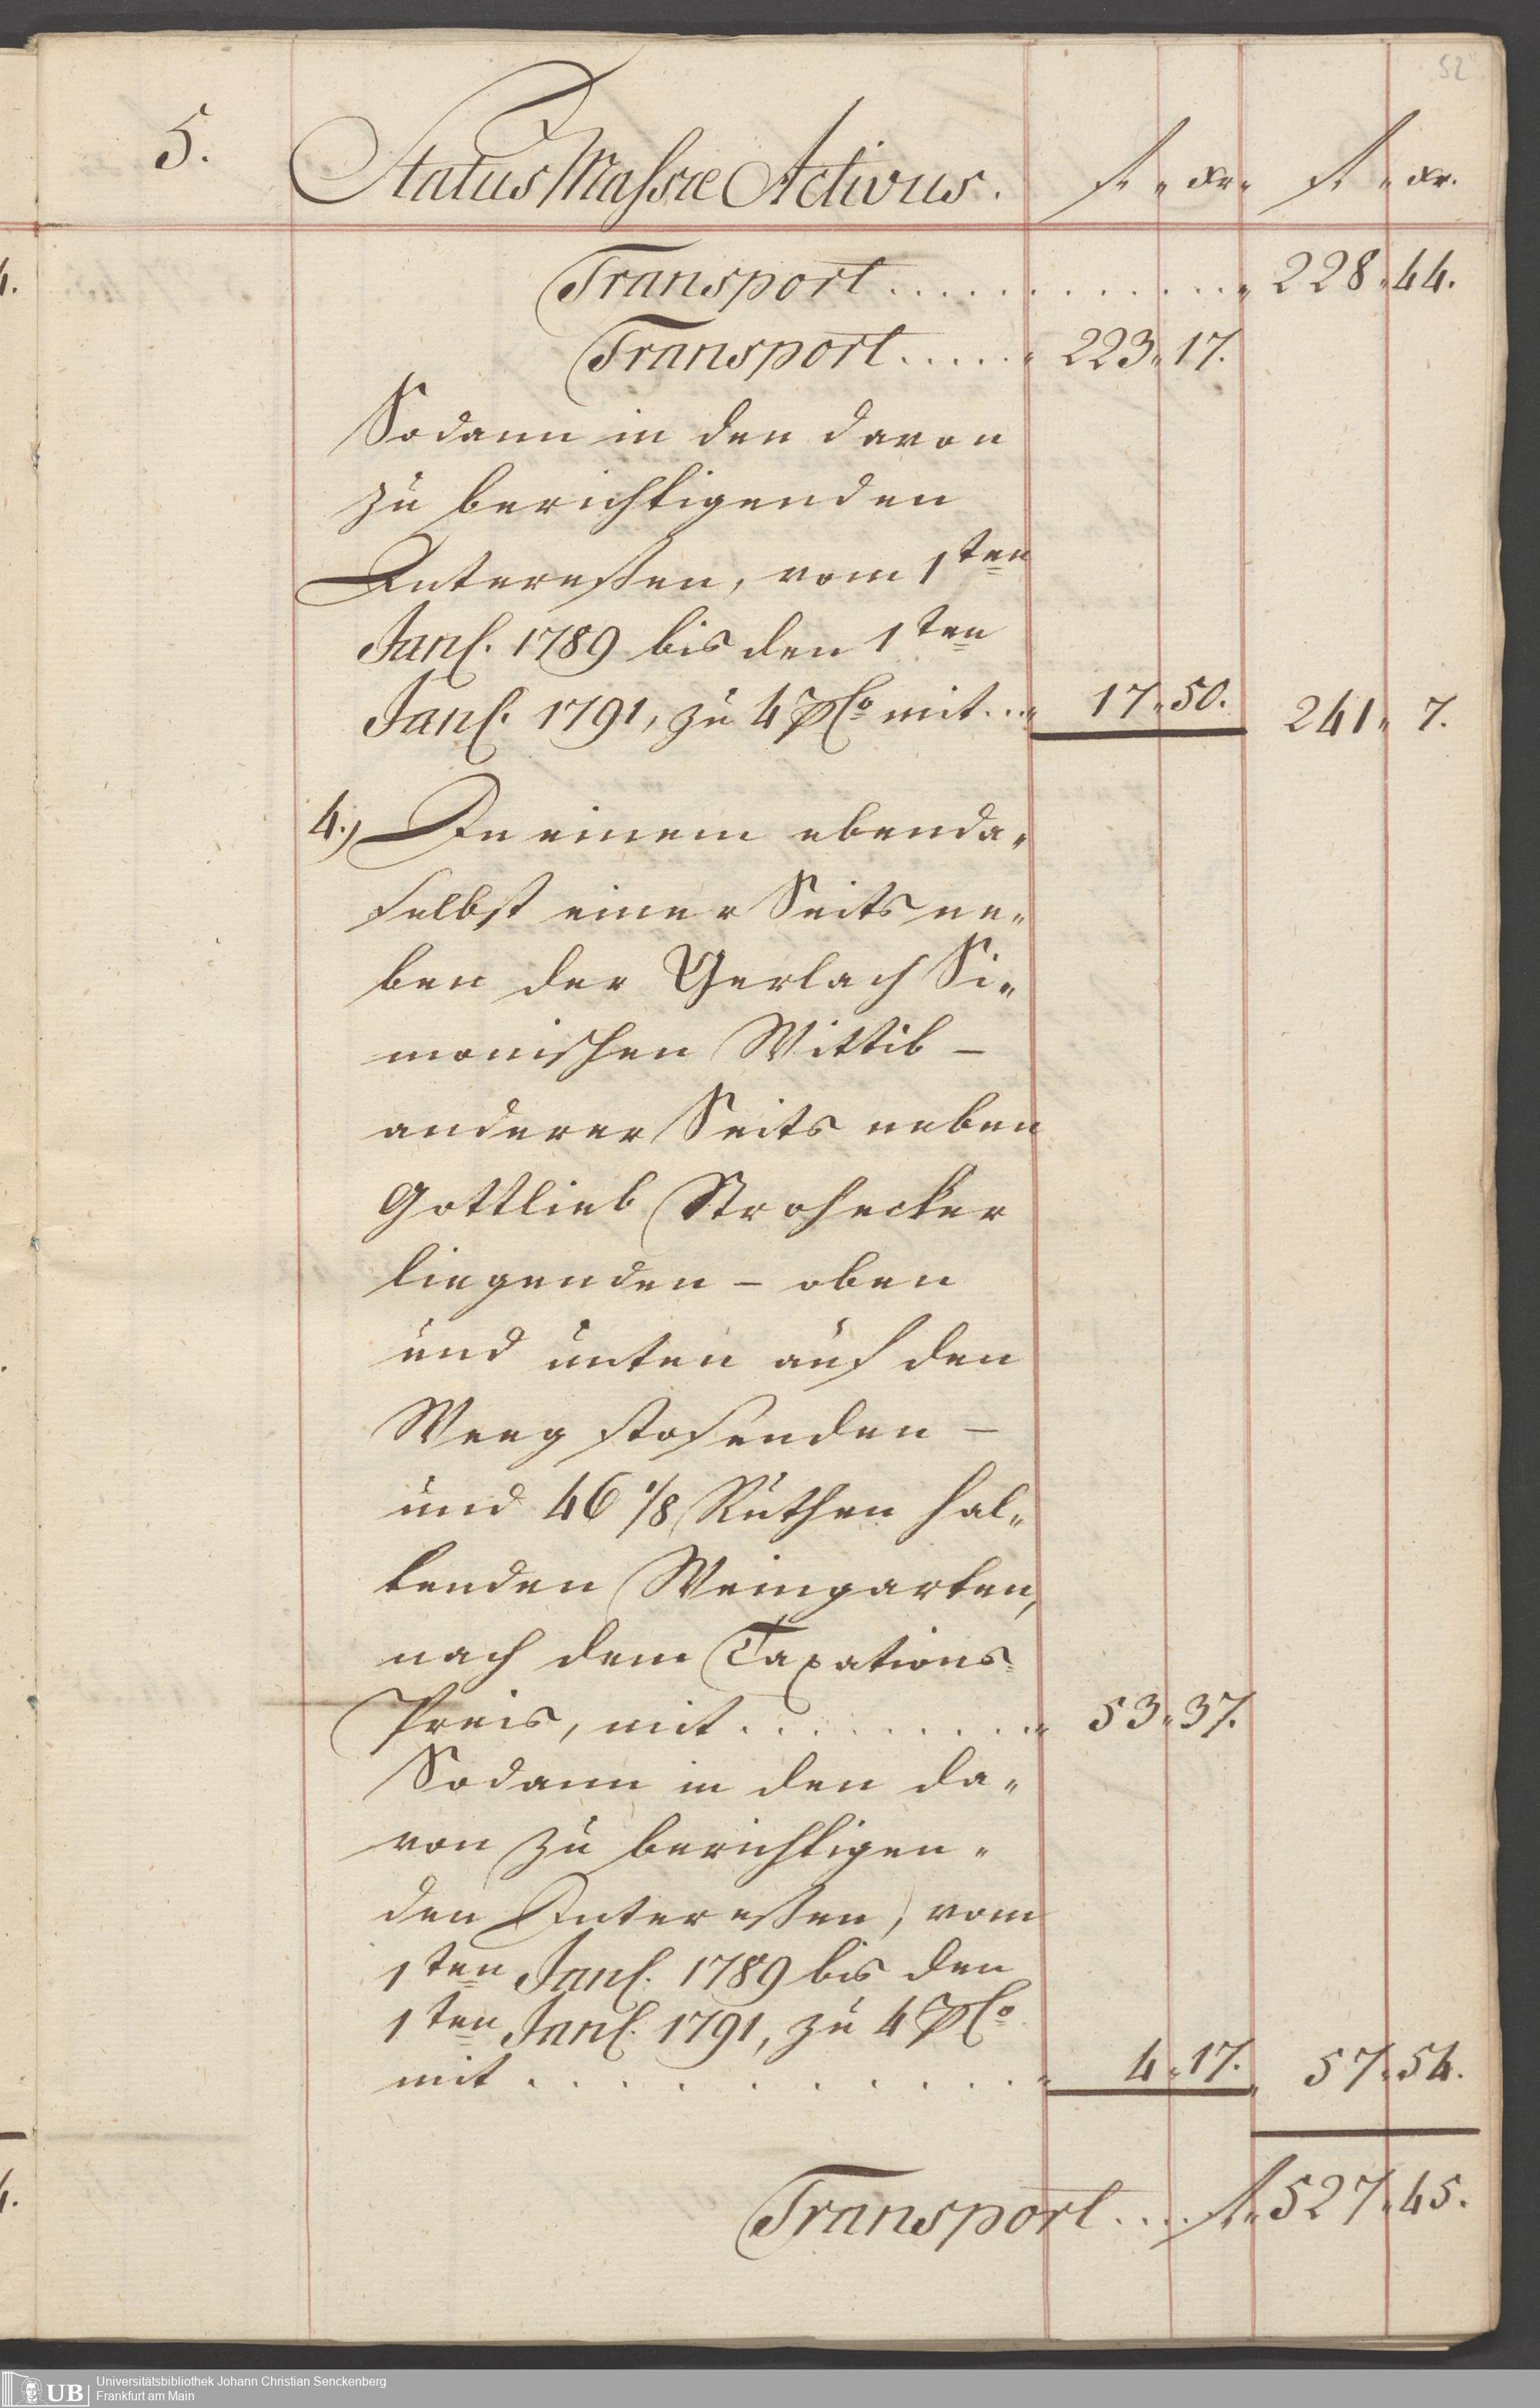 52
5. Status Massæ Activus. fl. xr. fl. xr.
Transport . . . . . . . . . . . . . 228. 44.
Transport . . . . . 223. 17.
Sodann in den davon
zu berichtigenden
Interessen, vom 1ten
Jan. 1789 bis den 1ten
Jan. 1791, zu 4 pCo mit . . . 17. 50. 241. 7.
4.) In einem ebenda-
selbst einer Seits ne-
ben der Gerlach Si-
monischen Wittib –
anderer Seits neben
Gottlieb Strohecker
liegenden – oben
und unten auf den
Weeg stosenden –
und 46 1/8 Ruthen hal-
tenden Weingarten,
nach dem Taxations-
Preis, mit . . . . . . . . . 53. 37.
Sodann in den da-
von zu berichtigen-
den Interessen, vom
1ten Jan. 1789 bis den
1ten Jan. 1791, zu 4 pCo
mit . . . . . . . . . . . . 4. 17. 57. 54.
Transport . . . . fl. 527. 45.
4.
4.
UB Universitätsbibliothek Johann Christian Senckenberg
Frankfurt am Main